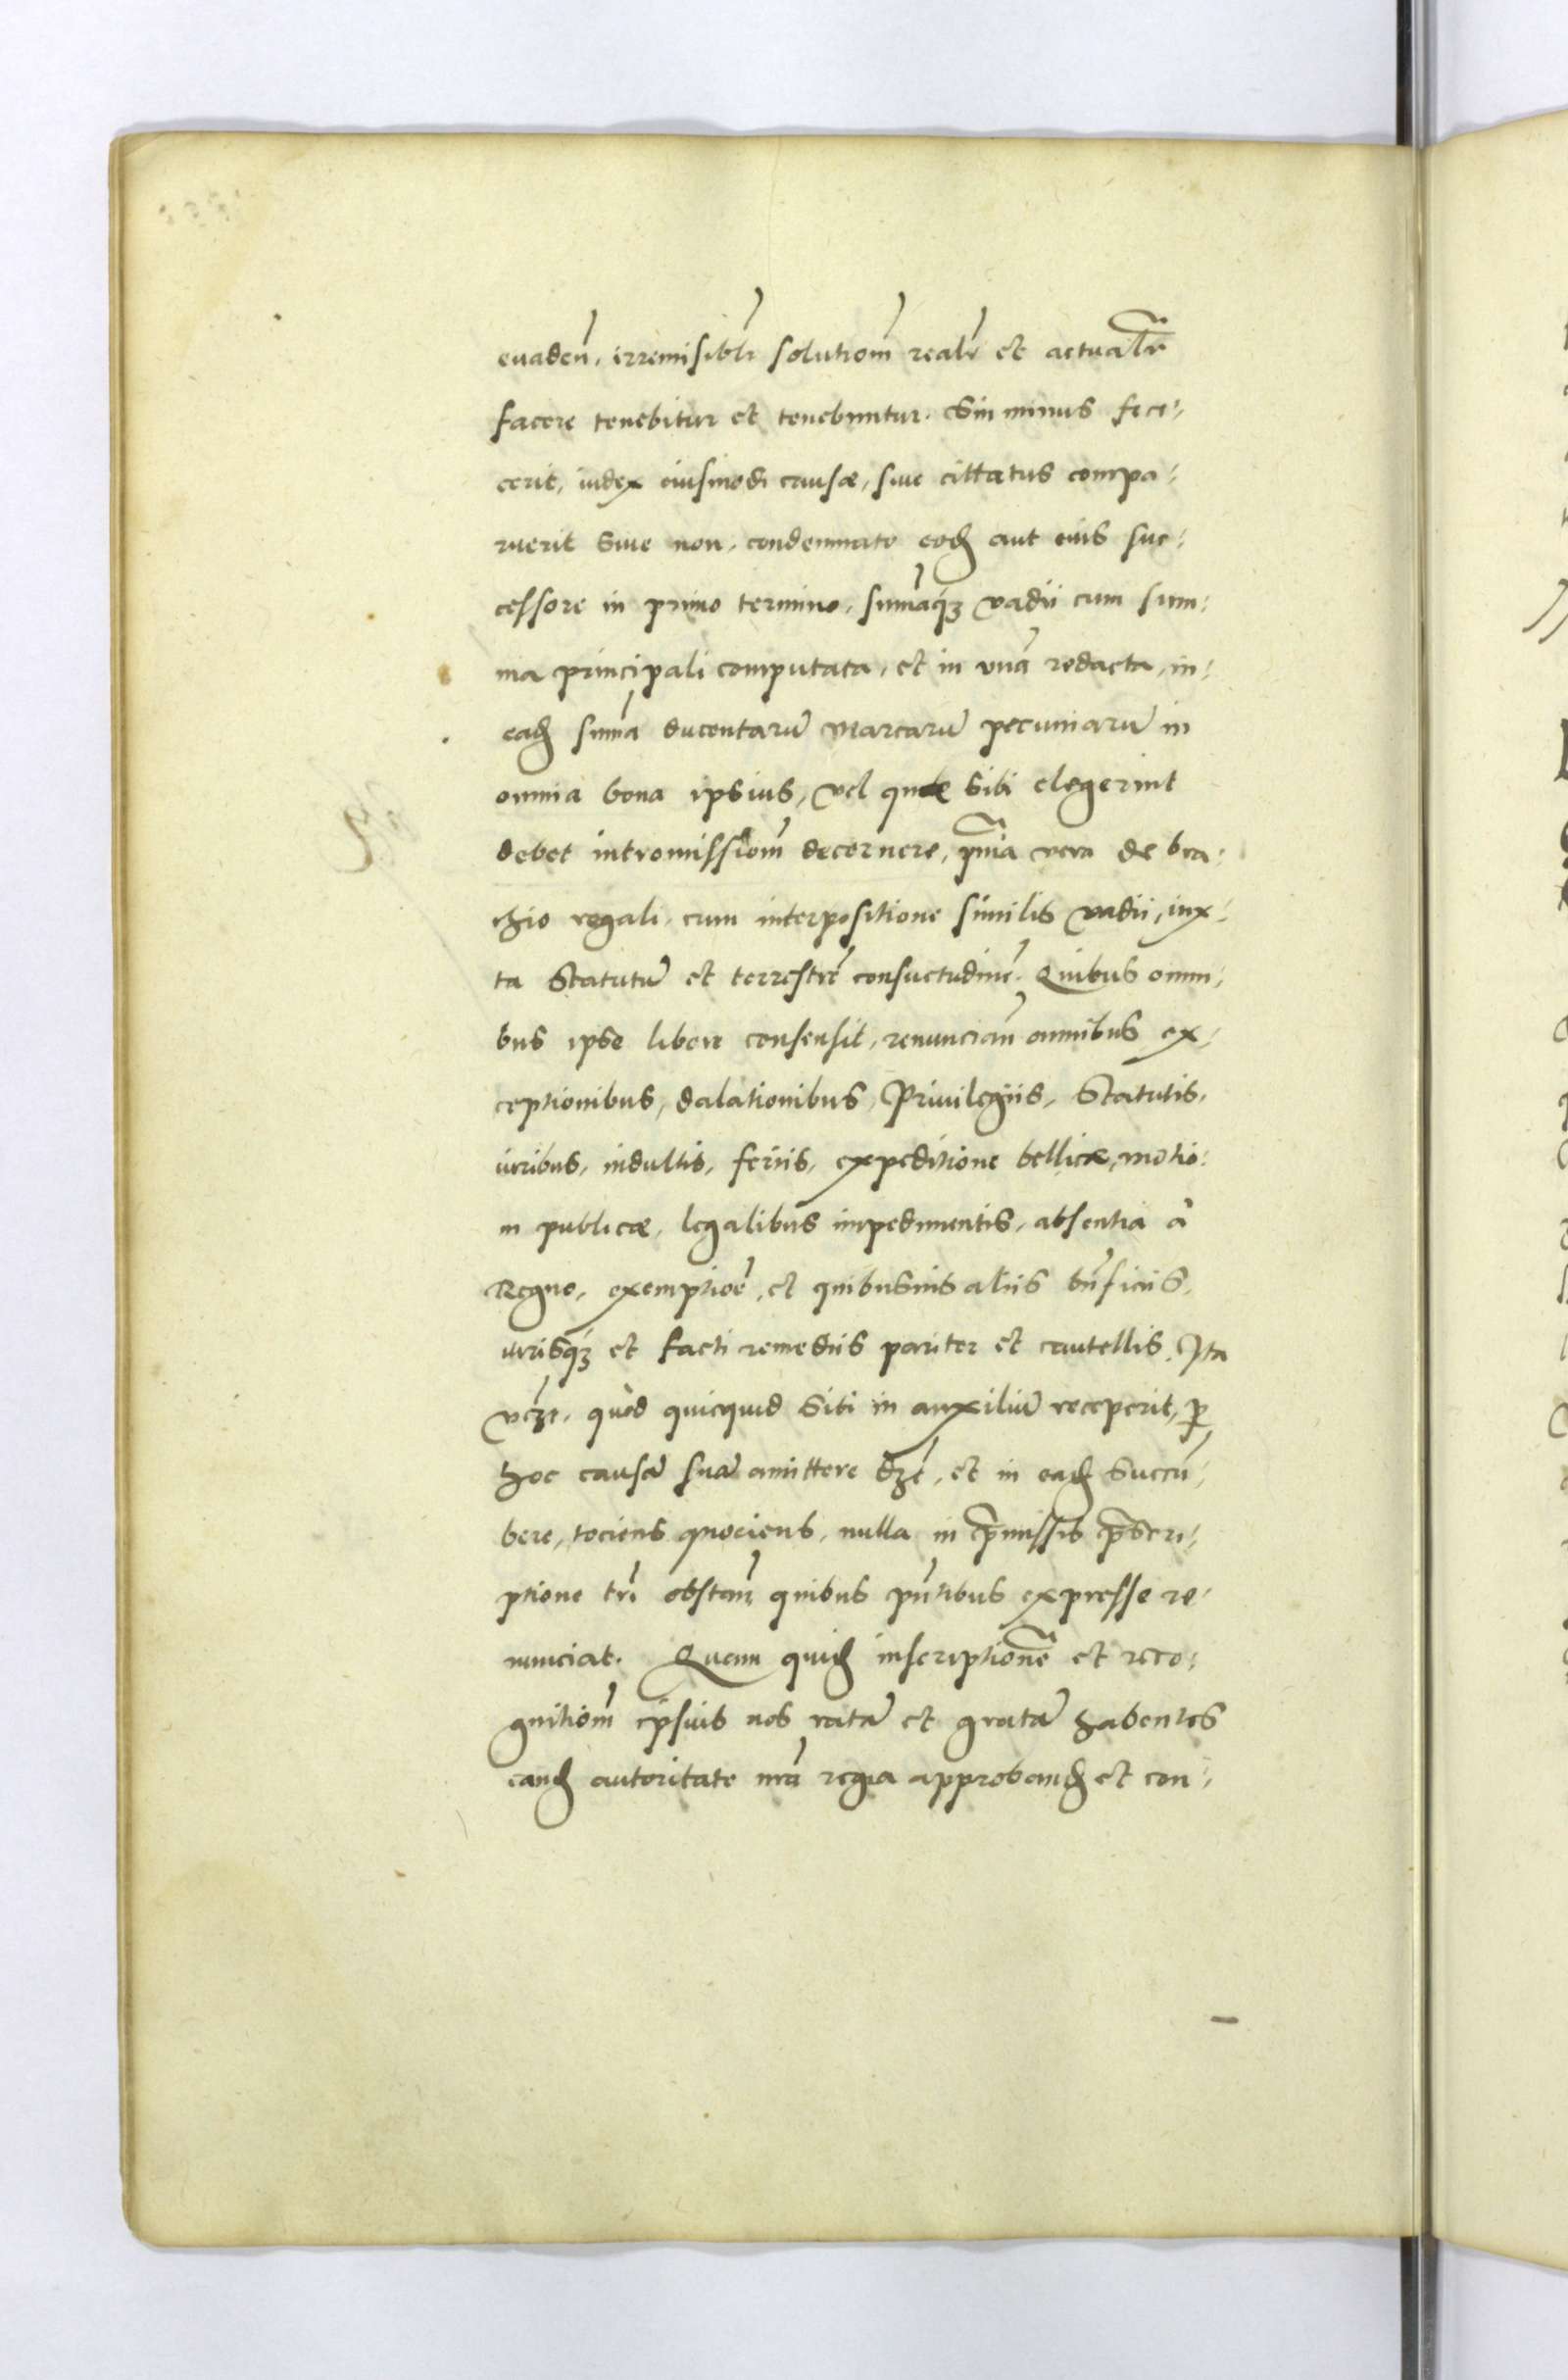 euaden̄, irremisibl̄r solutiom̄ realr̄ et actualr̄
facere tenebitur et tenebuntur. Sin minus fece,
cerit, iudex eiusmodi causæ, siue cittatus compa,
ruerit siue non, condemnato eod̄ aut eius suc,
cessore in primo termino, sum̄aq̄ꝫ vadii cum sum,
ma principali computata, et in vnā redacta, in,
ead̄ sum̄a ducentarū marcarū pecuniarū in
omnia bona ipsius, vel quæ sibi elegerint
debet intromissiom̄ decernere, pn̄ia vero de bra,
chio regali cum interpositione similis vadii, iux,
ta Statutū et terrestrē consuetudinē. Quibus omni,
bus ipse libere consensit, renuncian̄ omnibus ex,
ceptionibus, dalationibus, Priuilegiis, Statutis,
iuribus, indultis, feriis, expeditione bellicæ, motio,
n publicæ, legalibus impedimentis, absentia à
Regno, exemptioē, et quibusuis aliis bn̄ficiis,
iurisq̄ꝫ et facti remediis pariter et cautellis. Ita
vcꝫt, quòd quicquid sibi in auxiliū receperit, ꝑ
hoc causā suā amittere dꝫt̄, et in ead̄ succū,
bere, tociens quociens, nulla in p̄missis p̄scri,
ptione tr̄i obstan̄ quibus pn̄tibus expresse re,
nunciat. Quam quid̄ inscriptionē et reco,
gnitiom̄ ipsius nos ratā et gratā habentes
eand̄ autoritate nr̄a regia approband̄ et con,